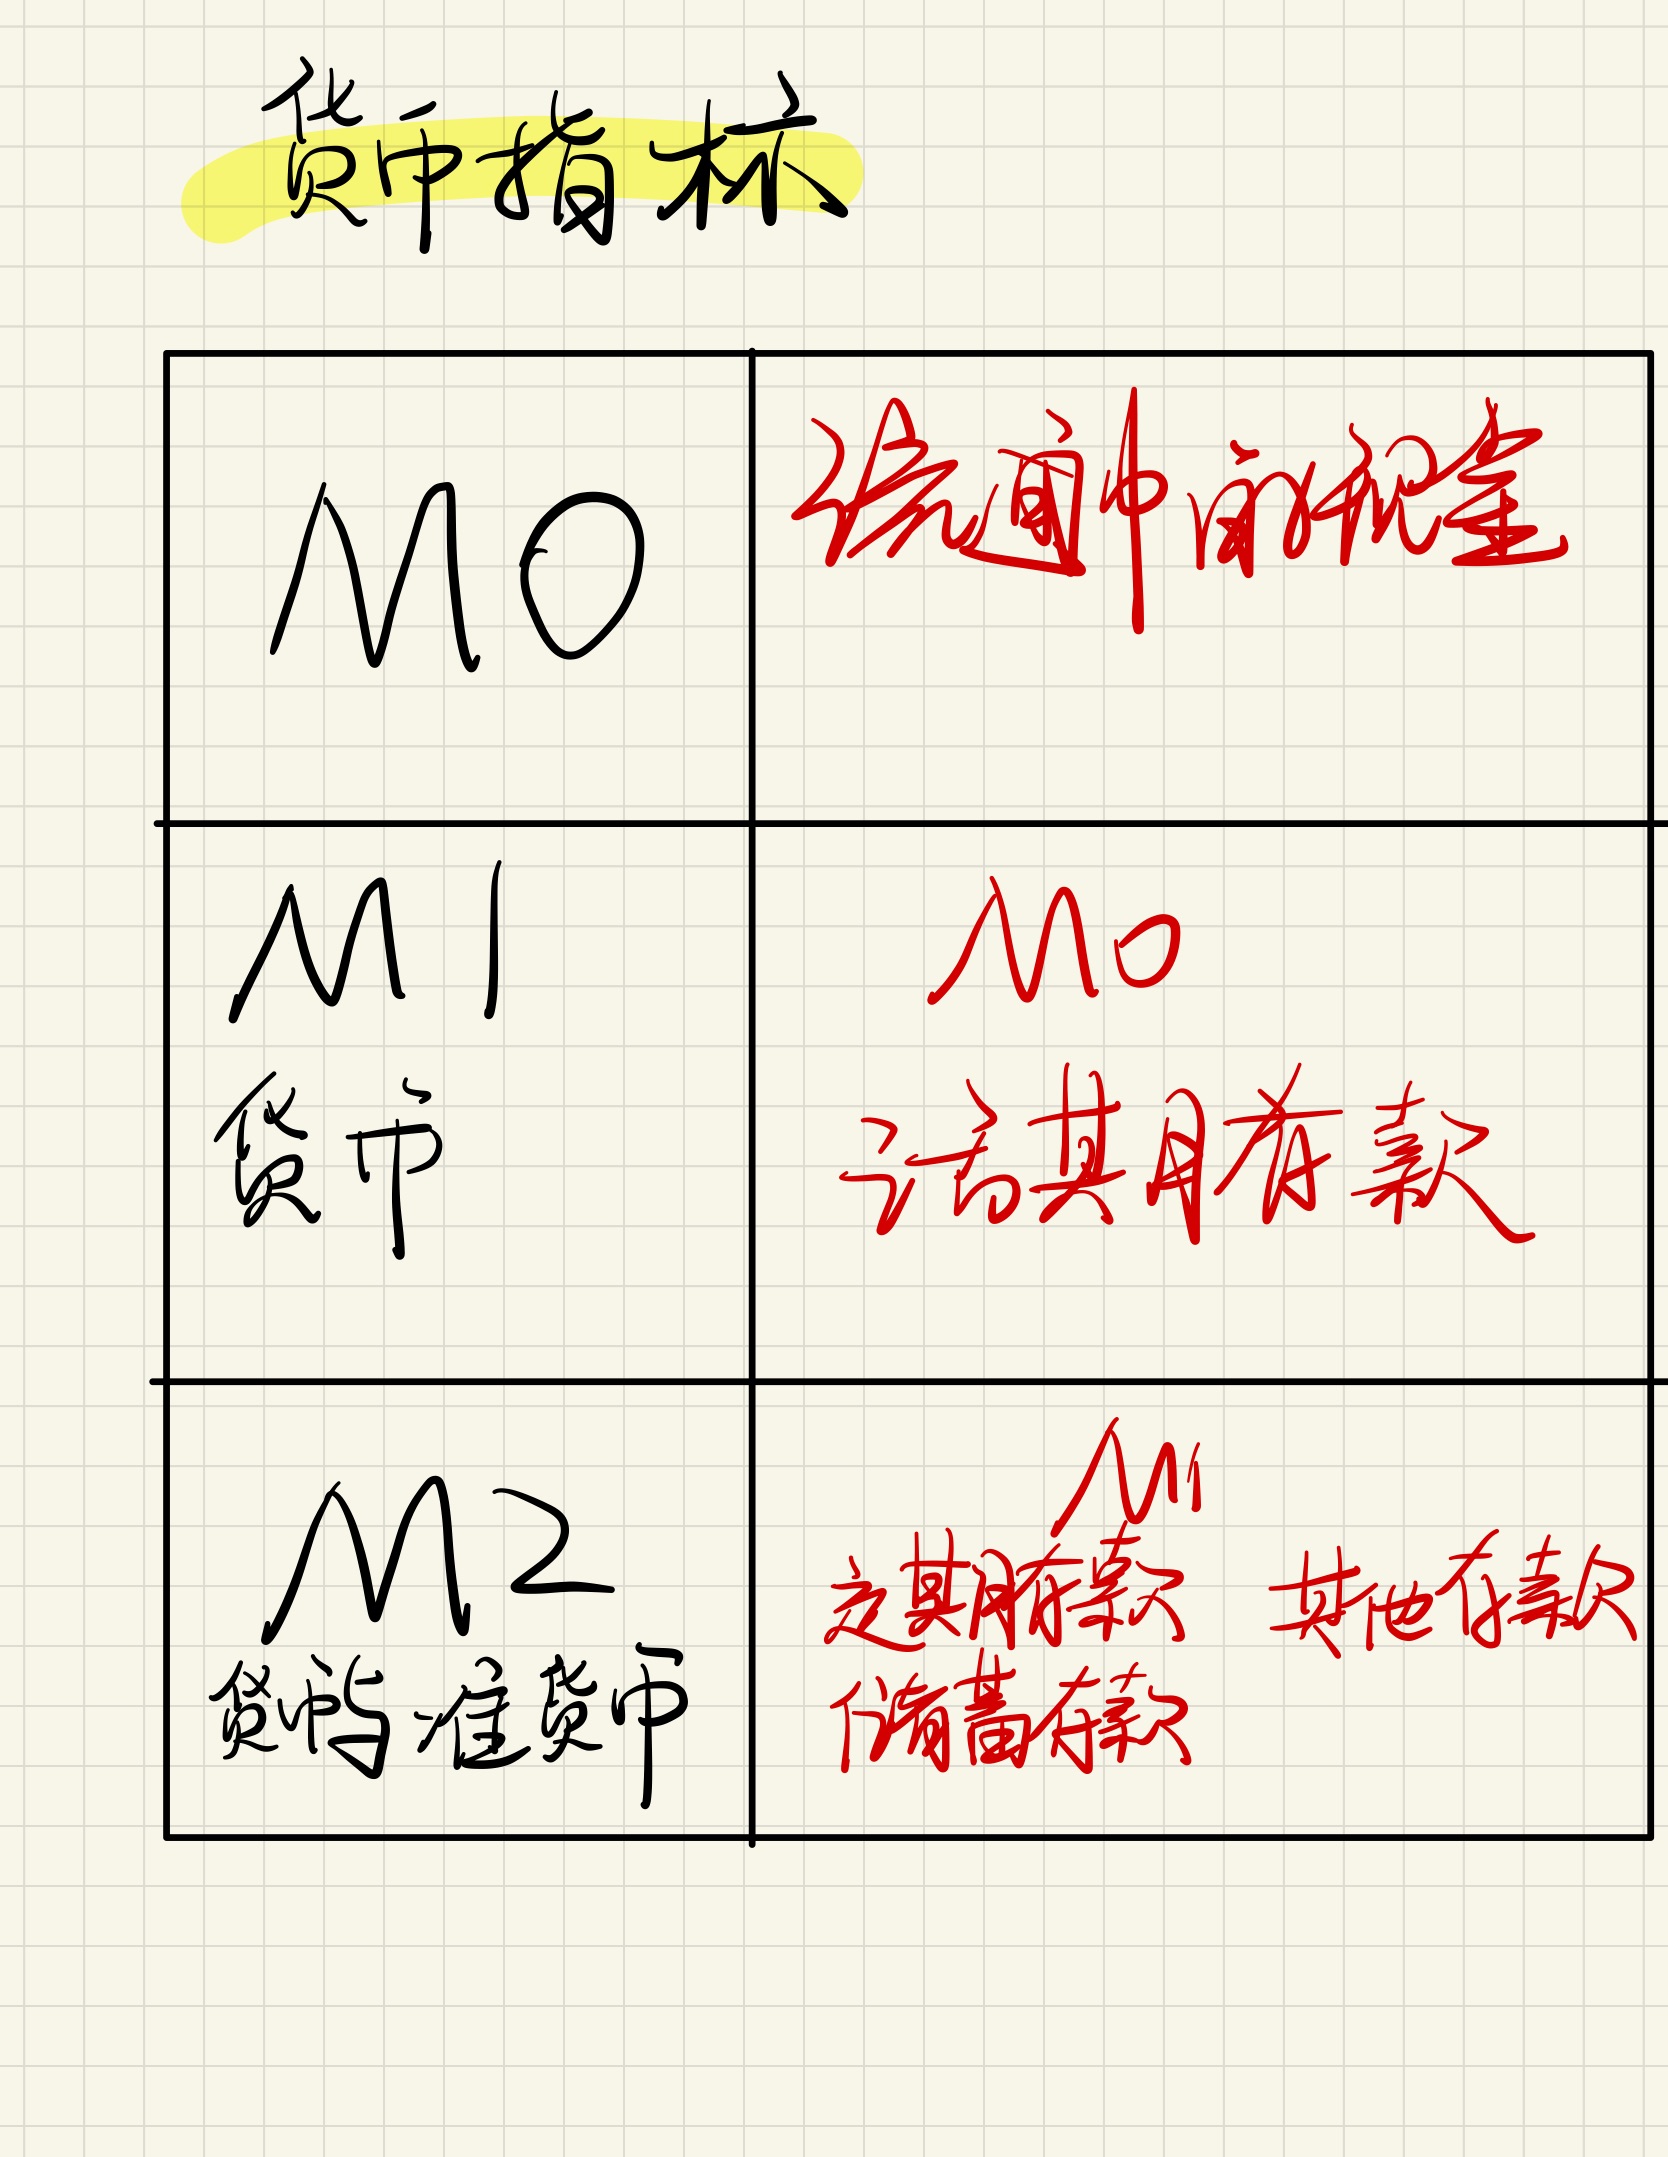 货币指标
M0
流通中的现金
M1
货币
M0
活期存款
M2
货币与准货币
M1
定期存款 其他存款
储蓄存款